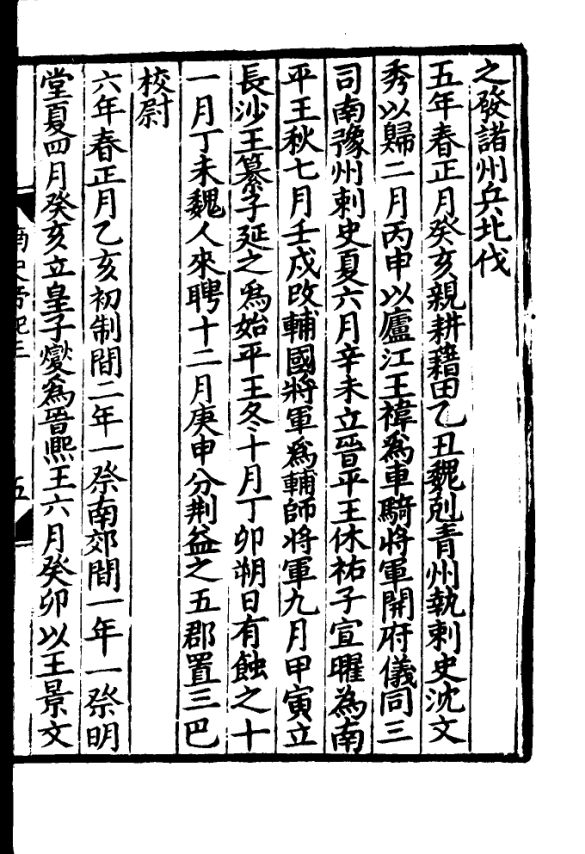 之發諸州兵北伐
五年春正月癸亥親耕藉田乙丑魏剋青州執刺史沈文
秀以歸二月丙申以廬江王禕爲車騎將軍開府儀同三
司南豫州刺史夏六月辛未立晉平王休祐子宣曜為南
平王秋七月壬戍改輔國將軍爲輔師將軍九月甲寅立
長沙王纂子延之爲始平王冬十月丁卯朔日有蝕之十
一月丁未魏人來聘十二月庚申分荆益之五郡置三巴
校尉
六年春正月乙亥初制間二年一祭南郊間一年一祭明
堂夏四月癸亥立皇子燮爲晉熙王六月癸卯以王景文
五